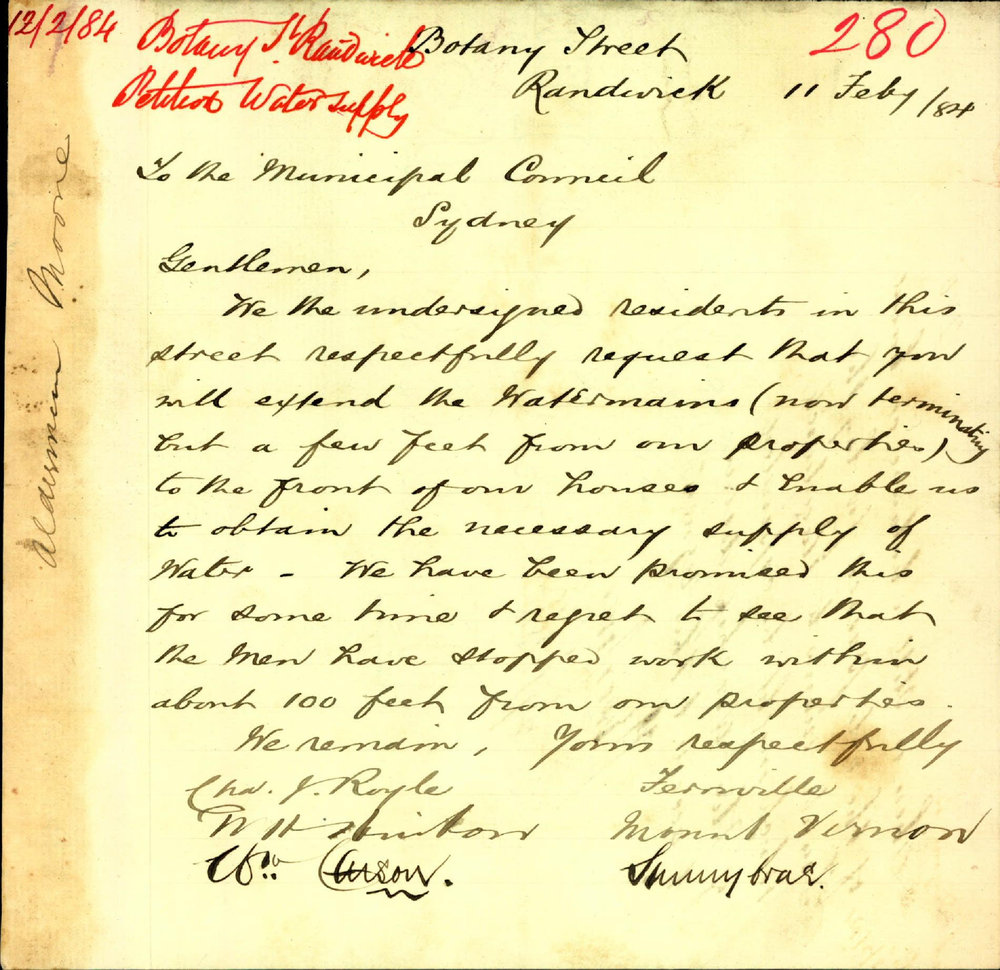 12/2/84
280
Botany St Randwick
Petition Water supply
Botany Street
Randwick 11 Feby /84
Alderman Moore
To the Municipal Council
Sydney
Gentlemen,
We the undersigned residents in this
street respectfully request that you
will extend the Watermains (now terminating
but a few feet from our properties)
to the front of our houses & Enable us
to obtain the necessary supply of
Water - We have been promised this
for some time & regret to see that
the Men have stopped work within
about 100 feet from our properties.
We remain, Yours respectfully
Chas. J. Royle Fernville
W H Mount Vernon
Wm Curson. Sunnybrae.